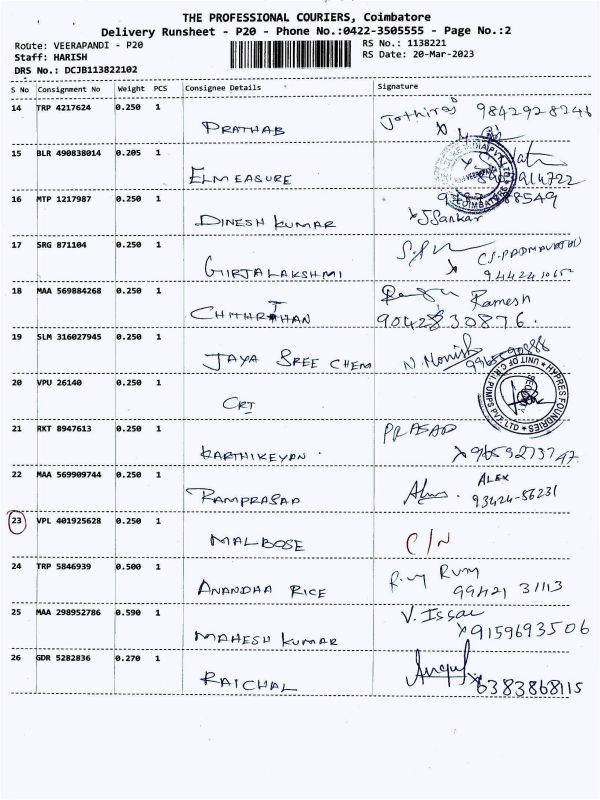 THE PROFESSIONAL COURIERS, Coimbatore
Delivery Runsheet - P20 - Phone No.:0422-3505555 - Page No.:2
Route: VEERAPANDI - P20
RS No.: 1138221
Staff: HARISH
RS Date: 20-Mar-2023
DRS No.: DCJB113822102
S No Consignment No Weight PCS Consignee Details Signature
14 TRP 4217624 0.250 1
PRATHAB
9842928246
15 BLR 490838014 0.205 1
ELMEASURE
16 MTP 1217987 0.250 1
DINESH KUMAR
J Sankar
17 SRG 871104 0.250 1
GIRIJALAKSHMI
18 MAA 569884268 0.250 1
Ramesh
9042830876.
19 SLM 316027945 0.250 1
JAYA SREE CHEM
20 VPU 26140 0.250 1
CRI
HYPRES FOUNDRIES
UNIT OF C.R.I. PUMPS PVT LTD
21 RKT 8947613 0.250 1
PRASAD
KARTHIKEYAN .
9659273747
22 MAA 569909744 0.250 1
ALEX
RAMPRASAD
93424-56231
23 VPL 401925628 0.250 1
MALBOSE
C/N
24 TRP 5846939 0.500 1
ANANDHA RICE
99421 31113
25 MAA 298952786 0.590 1
V. Issac
MAHESH KUMAR
9159693506
26 GDR 5282836 0.270 1
RAICHAL
6383868115